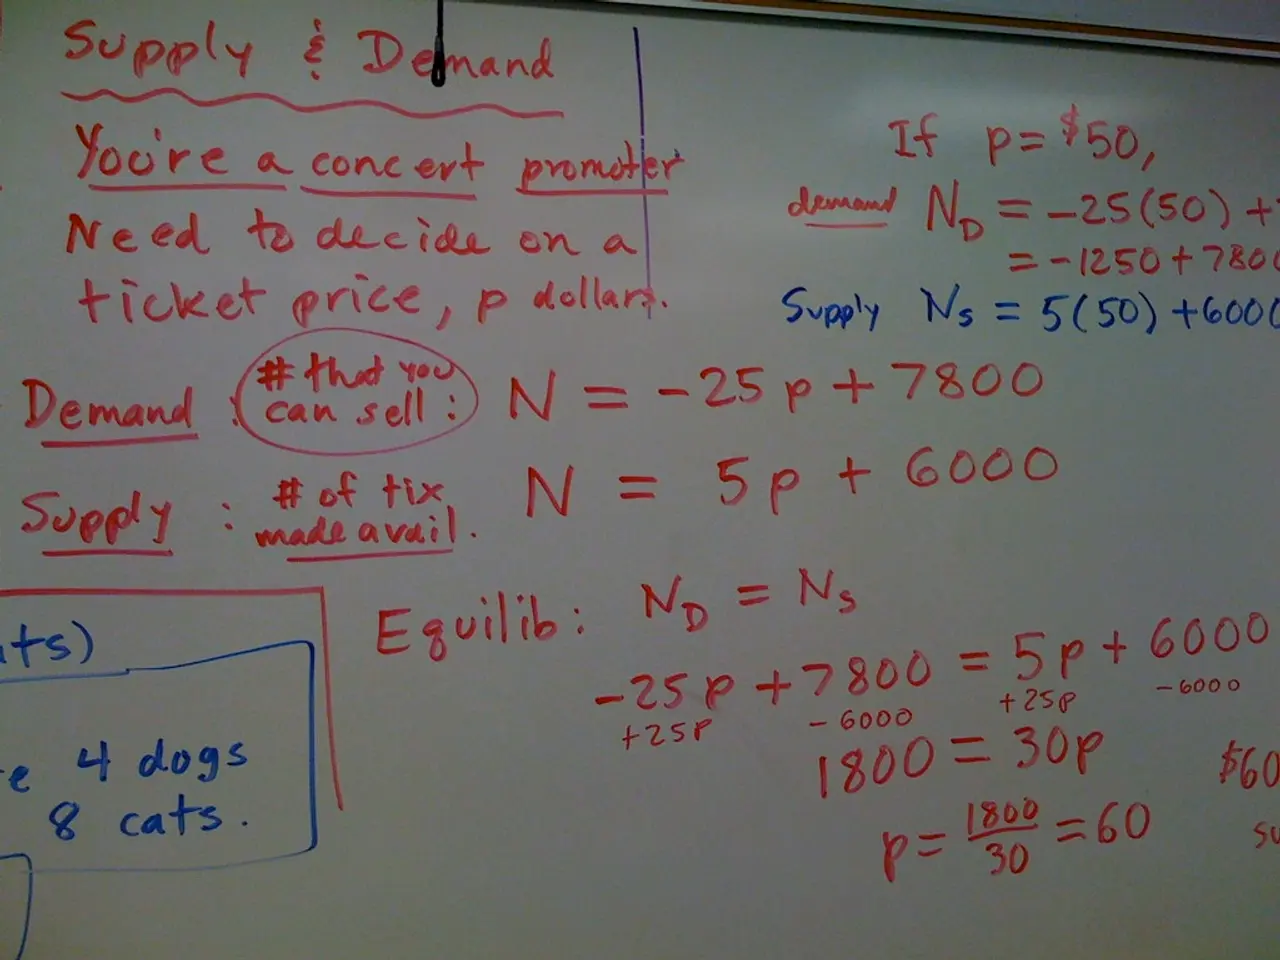 Supply & Demand
You're a concert promoter
Need to decide on a
ticket price, p dollars.
Demand : # that you can sell : N = -25p + 7800
Supply : # of tix made avail. N = 5p + 6000
If p = $50,
demand N_D = -25(50) +
= -1250 + 7800
Supply N_S = 5(50) + 6000
Equilib: N_D = N_S
-25p + 7800 = 5p + 6000
+25p -6000 +25p -6000
1800 = 30p
p = 1800/30 = 60
$60
4 dogs
8 cats.